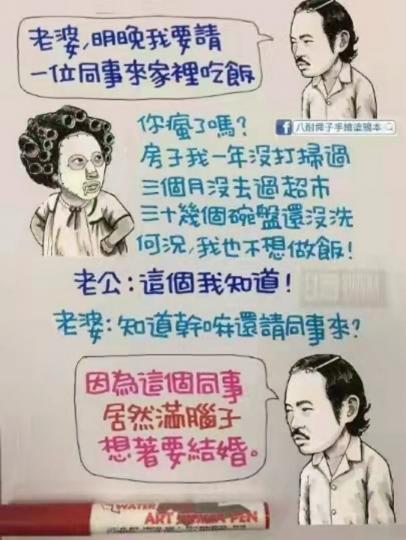 老婆,明晚我要請
一位同事來家裡吃飯
八耐舜子手繪塗鴉本
你瘋了嗎?
房子我一年沒打掃過
三個月沒去過超市
三十幾個碗盤還沒洗
何況,我也不想做飯!
老公:這個我知道!
老婆:知道幹嘛還請同事來?
因為這個同事
居然滿腦子
想著要結婚。
WATER
ART PEN